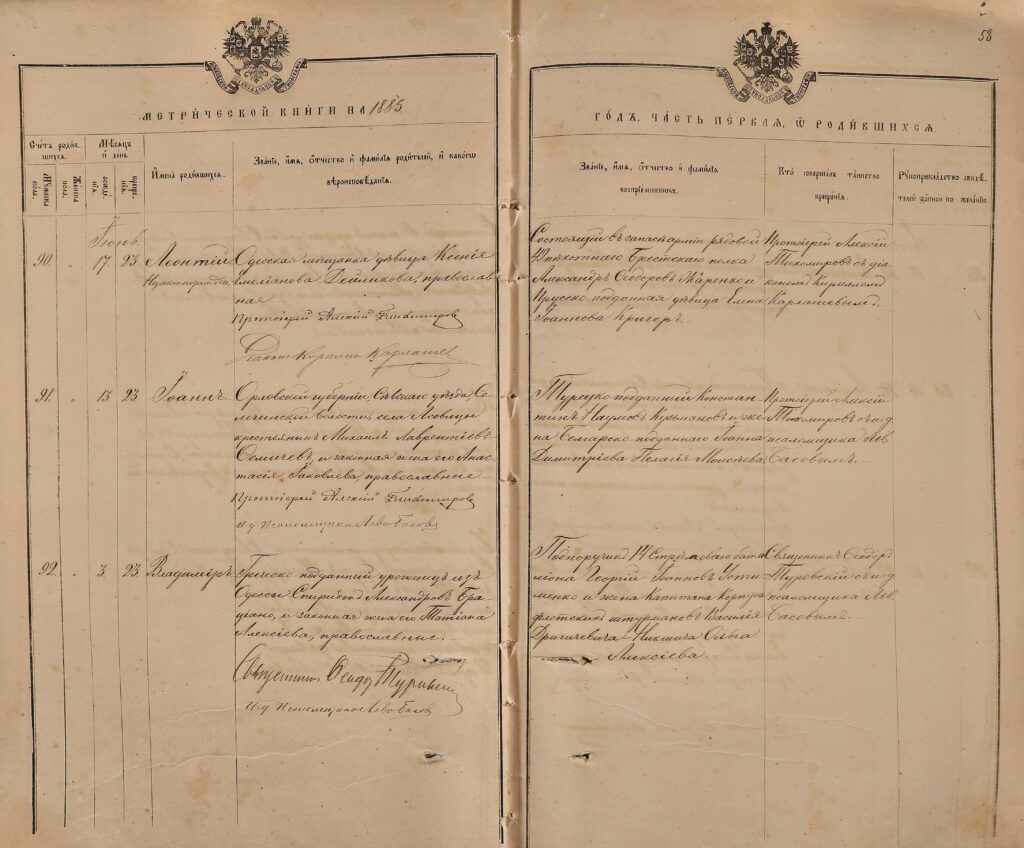 58
МЕТРИ́ЧЕСКОЙ КНИ́ГИ НА 1885
ГО́ДЪ, ЧА́СТЬ ПЕ́РВАЯ, Ѿ РОДИ́ВШИХСЯ.
Сче́тъ роди́вшихся.
Му́жеска по́ла.
Же́нска по́ла.
Мѣ́сяцъ и҆ де́нь
рожде́нія.
креще́нія.
И҆мена̀ роди́вшихся.
Зва́ніе, и҆́мя, ѻ҆́тчество и҆ фами́лія роди́телей, и҆ како́гѡ
вѣроисповѣ́данія.
Зва́ніе, и҆́мя, ѻ҆́тчество и҆ фами́лія
воспріе́мникѡвъ.
Кто̀ соверша́лъ та́инство
креще́нія.
Рꙋкоприкла́дство свидѣ́телей за́писи по жела́нію.
Іюнь
90. " 17. 23 Леонтій
Одесская мѣщанка дѣвица Ксенія
Емеліанова Дейникова, православ-
ная
Протоіерей Алексій Тихомировъ
Діаконъ Кириллъ Карлашев
Состоящій въ запасѣ арміи рядовой
пѣхотнаго Брестскаго полка
Александръ Ѳедоровъ Жаренко и
Прусско-подданная дѣвица Елена
Іоаннова Кригеръ
Протоіерей Алексій
Тихомировъ съ діа-
кономъ Кирилломъ
Карлашевымъ.
91. " 13 23 Іоаннъ
Орловской губерніи, Сѣвскаго уѣзда, Се-
волости, села
крестьянинъ Михаилъ Лаврентіевъ
Семичевъ, и законная жена его Анас-
тасія Іаковлева, православные
Протоіерей Алексій Тихомировъ
И. д. псаломщика Левъ Басовъ
Турецко-подданный Констан-
тинъ Наумовъ Кузьмановъ и же-
на Болгарско-подданнаго Іоанна
Димитріева Пелагія Моисѣева
Протоіерей Алексій
Тихомировъ съ и. д.
псаломщика Львомъ
Басовымъ.
92. " 3. 23. Владиміръ
Греческо-подданный уроженецъ изъ
Одессы Спиридонъ Александровъ Бра-
ціано, и законная жена его Татіана
Алексіева, православные.
Священникъ Ѳеодоръ Туровскій
И. д. псаломщика Левъ Басовъ
Подпоручикъ 14 Стрѣлковаго бата-
ліона Георгій Іоанновъ Усти-
менко и жена Капитана Корпуса
флотскихъ штурмановъ Василія
Григорьевича Никшича Ольга
Алексіева.
Священникъ Ѳеодоръ
Туровскій съ и. д.
псаломщика Львомъ
Басовымъ.